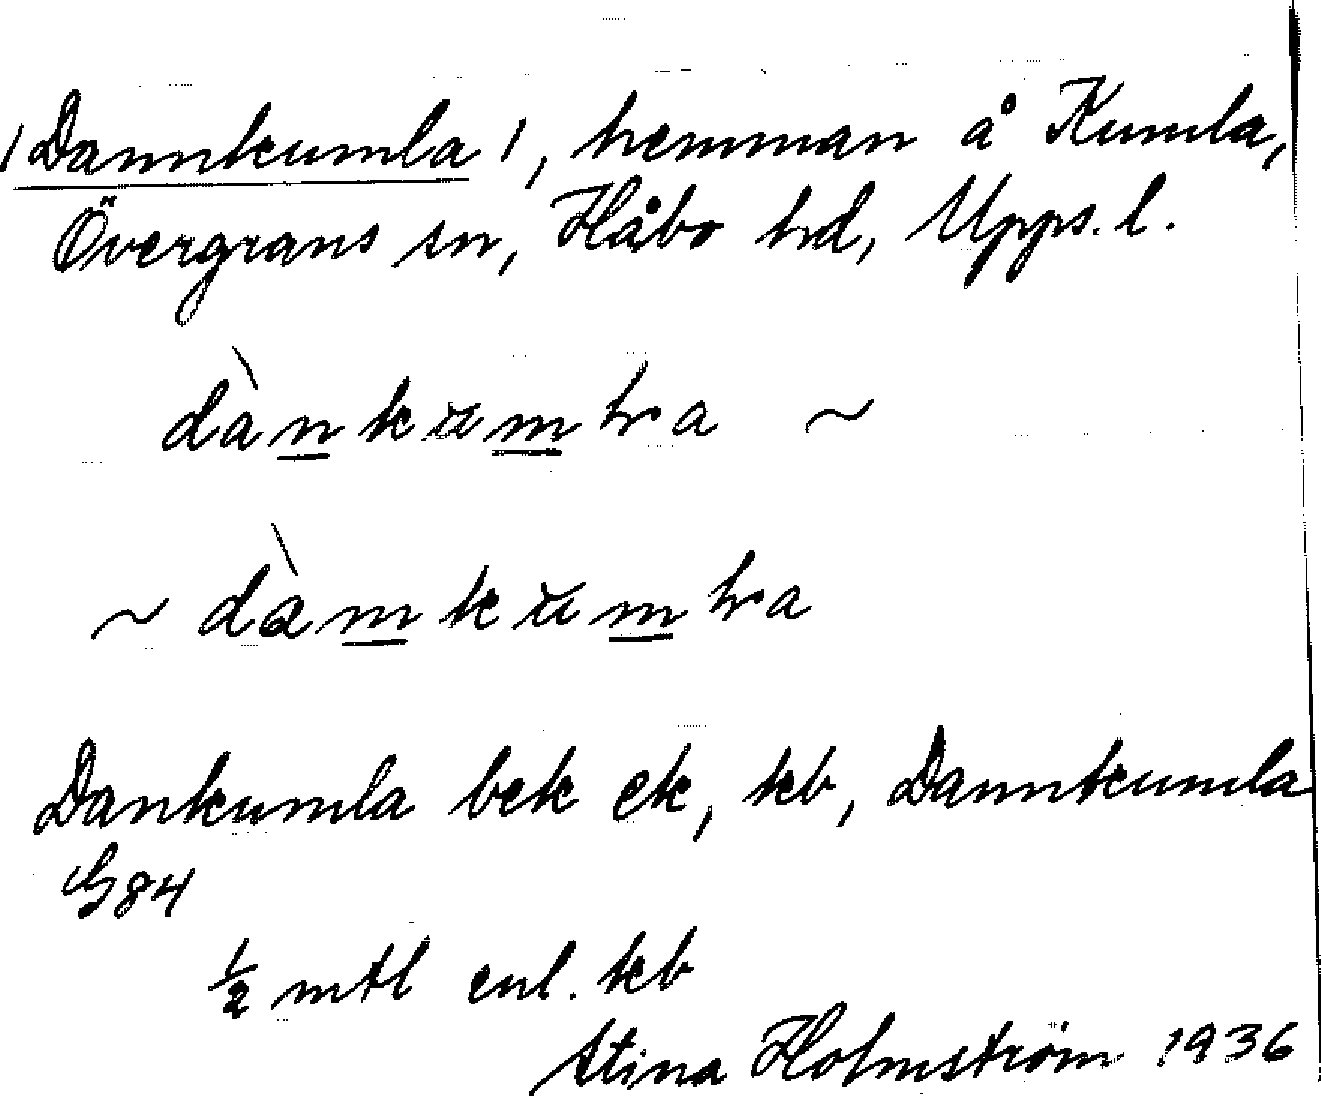 /Dannkumla/, hemman å Kumla,
Övergrans sn, Håbo hd, Upps. l.
dànkŭmɫa ~
~ dàmkŭmɫa
Dankumla bek ek, kb, Dannkumla
G84
½ mtl enl. kb
Stina Holmström 1936